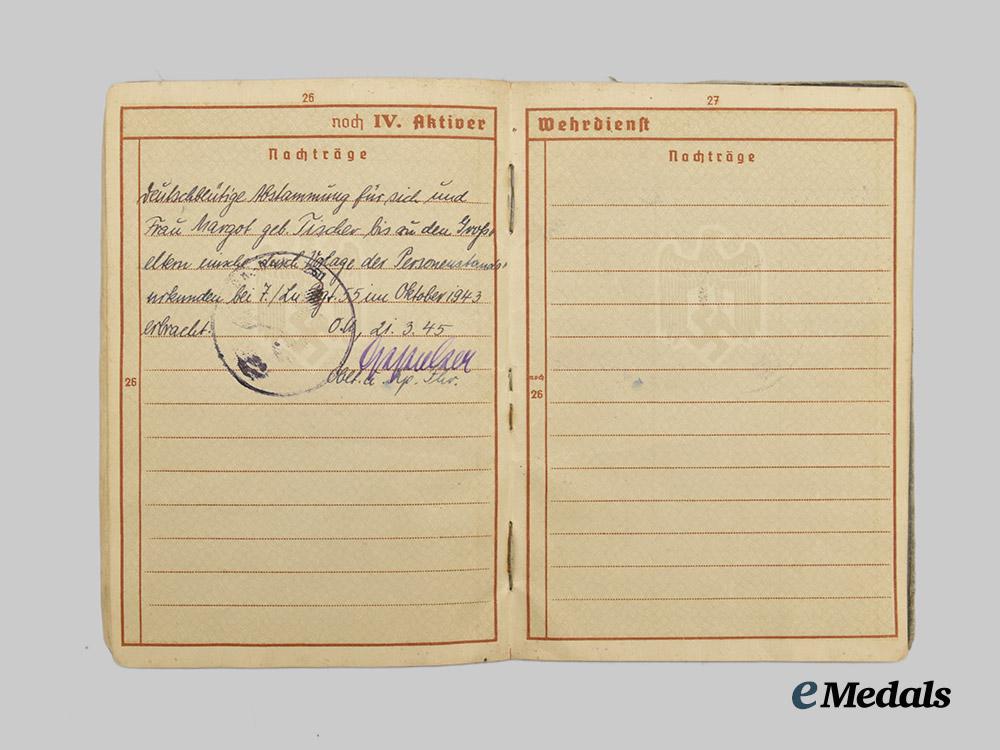 26
noch IV. Aktiver
Nachträge
Deutschblütige Abstammung für sich und
Frau Margot geb. Tischer bis zu den Groß-
eltern einschl. durch Vorlage der Personenstands-
urkunden bei 7./Ln. Rgt. 55 im Oktober 1943
erbracht. O.U., 21.3.45
Oblt. u. Kp. Fhr.
26
27
Wehrdienst
Nachträge
noch
26
eMedals